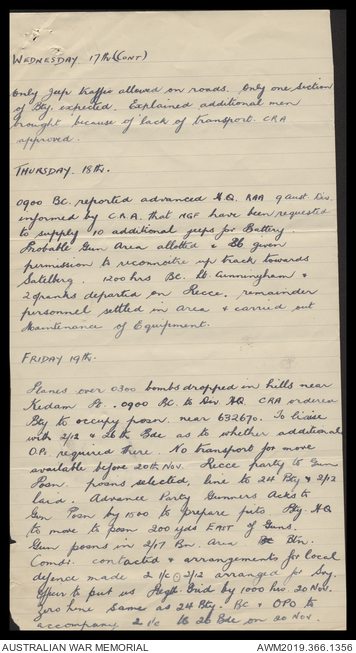 WEDNESDAY 17th (CONT)
Only Jeep traffic allowed on roads. Only one section
of Bty. expected. Explained additional men
brought because of lack of transport. CRA
approved.
THURSDAY. 18th.
0900 BC. reported advanced H.Q. RAA 9 Aust Div.
informed by C.R.A. that AGF have been requested
to supply 10 additional jeeps for Battery.
Probable Gun Area allotted & given
permission to reconnoitre up track towards
Satelberg. 1200 hrs BC. Lt. Cunningham &
2 ranks departed on Recce, remainder
personnel settled in area & carried out
Maintenance of Equipment.
FRIDAY 19th.
Planes over 0300 bombs dropped in hills near
Kedam Pt. 0900 BC. to Div HQ CRA ordered
Bty to occupy posn. near 632670. To liaise
with 2/12 & 26th Bde as to whether additional
O.P. required there. No transport for move
available before 20th Nov. Recce party to Gun
Posn. posns selected, line to 24 Bty & 2/12
laid. Advance Party Gunners Acks to
Gun Posn by 1500 to prepare pits. Bty HQ
to move to posn 200 yds EAST of Guns.
Gun posns in 2/17 Bn. Area. Btn.
Comdr. contacted & arrangements for local
defence made 2 i/c 2/12 arranged for Svy.
Officer to put us Regtl. Grid by 1000 hrs. 20 Nov.
Zero line same as 24 Bty. BC & OPO to
accompany 2 i/c to 26 Bde on 20 Nov.
AUSTRALIAN WAR MEMORIAL
AWM2019.366.1356